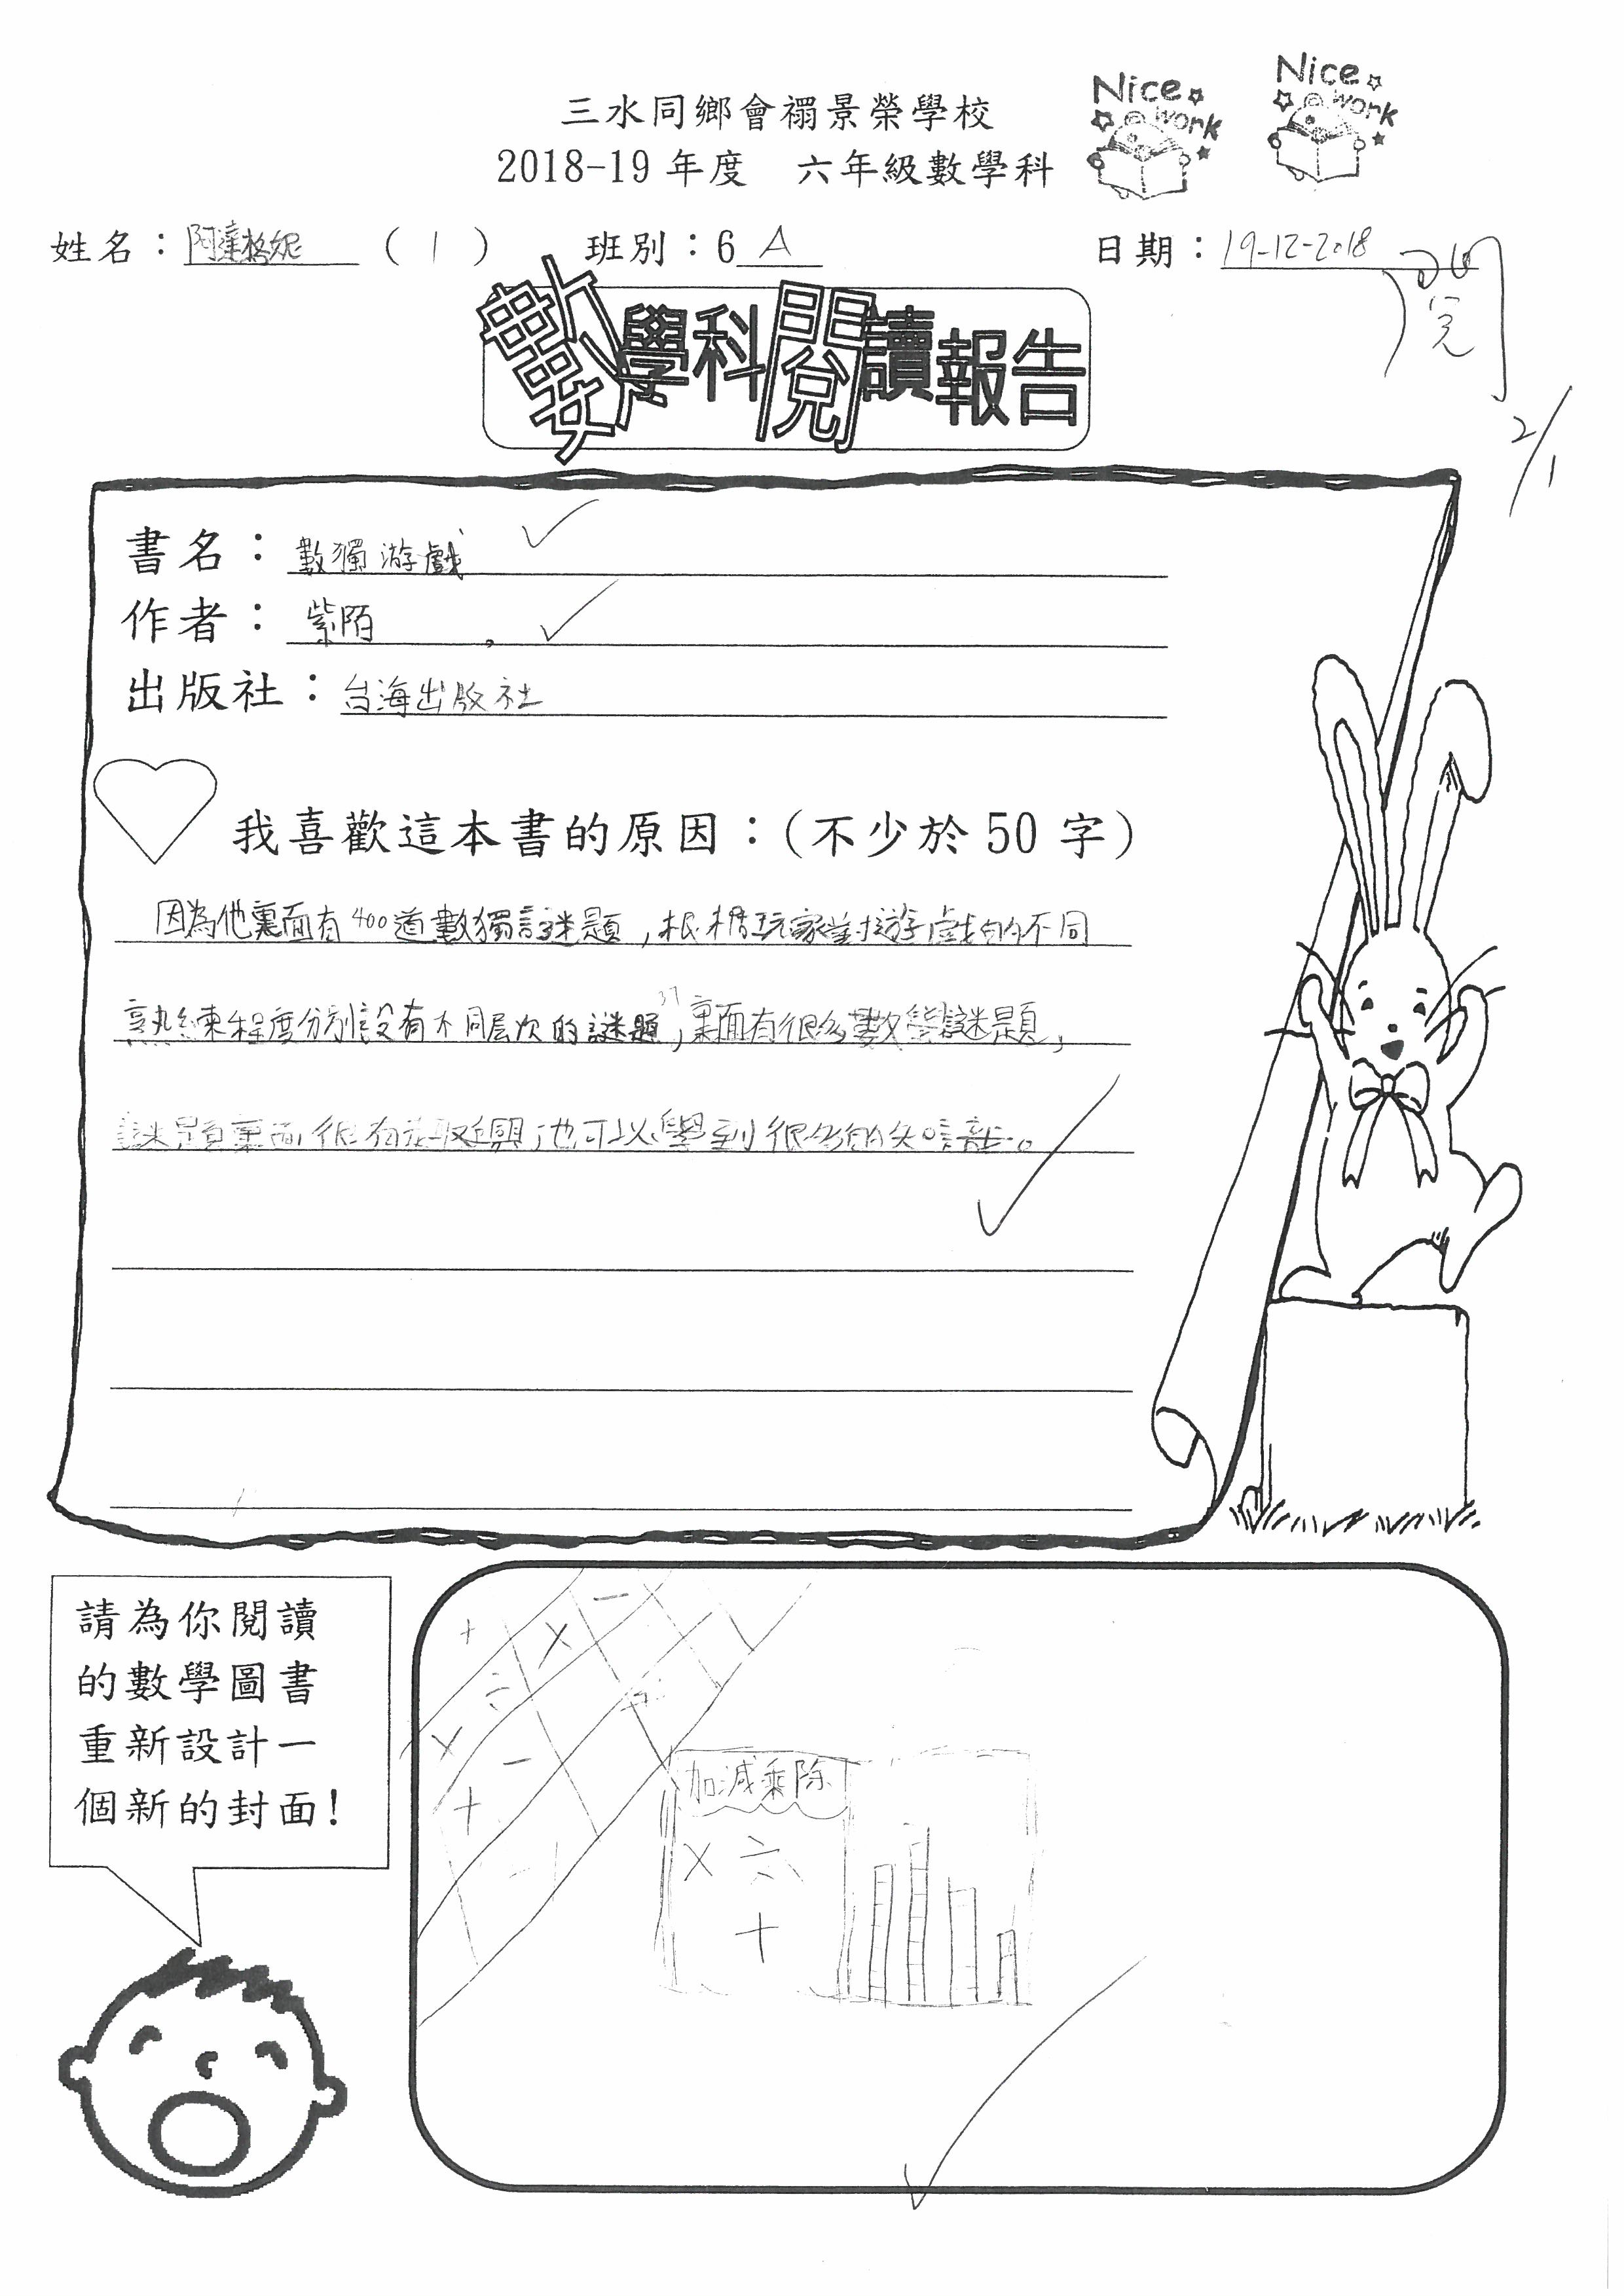 三水同鄉會禤景榮學校
2018-19 年度 六年級數學科
Nice work
Nice work
姓名：阿達格妮 (1) 班別：6 A 日期：19-12-2018
閱
2/1
數學科閱讀報告
書名：數獨游戲
作者：紫陌
出版社：台海出版社
我喜歡這本書的原因：(不少於 50 字)
因為他裏面有400道數獨謎題，根據玩家對遊戲的不同
熟練程度分別設有不同层次的謎題，裏面有很多數學謎題，
謎題裏面很有趣，也可以學到很多的知識。
37
請為你閱讀
的數學圖書
重新設計一
個新的封面!
+ × − ÷
× −
+ −
加減乘除
× ÷
+